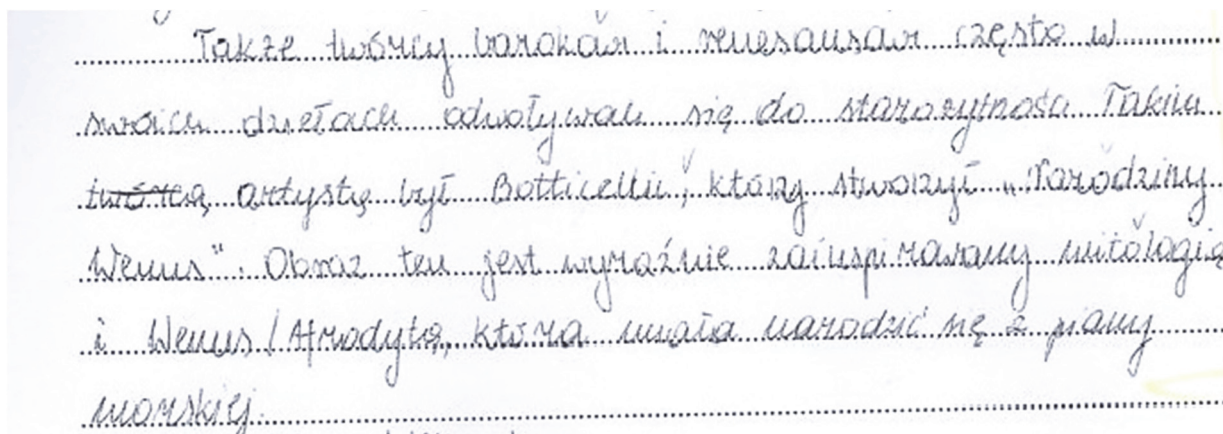 Także twórcy barokowi i renesansowi często w
swoich dziełach odwoływali się do starożytności Takim
twórcą artystą był Botticelli, który stworzył „Narodziny
Wenus". Obraz ten jest wyraźnie zainspirowany mitologią
i Wenus / Afrodytą, która miała narodzić się z piany
morskiej.